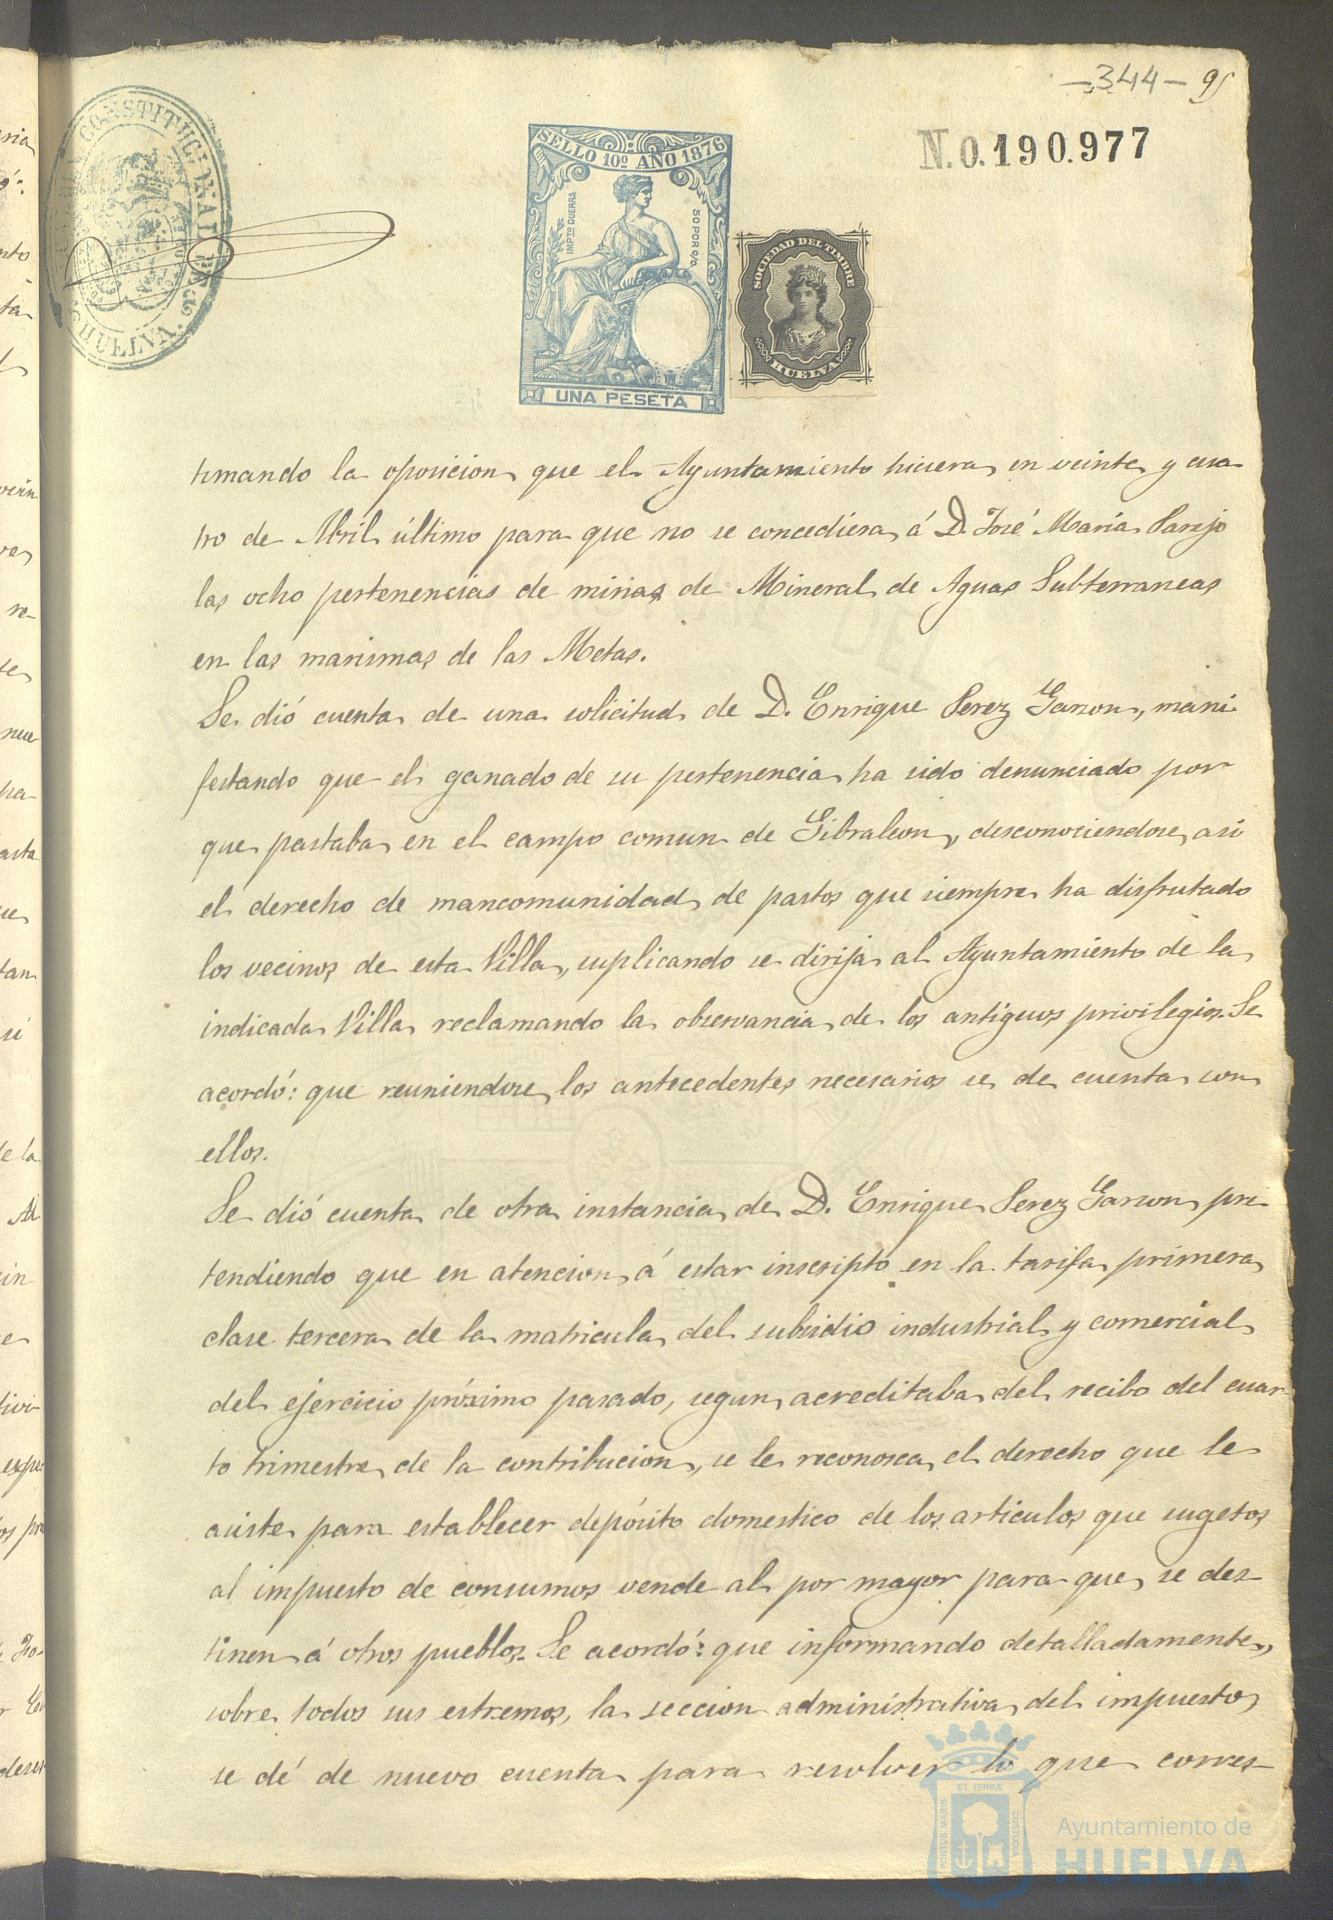 -344- 95
N.0.190.977
SELLO 10º AÑO 1876
IMPTO GUERRA
50 POR 0/0
UNA PESETA
SOCIEDAD DEL TIMBRE
HUELVA
CONSTITUCIONAL DE
HUELVA
timando la oposicion que el Ayuntamiento hiciera en veinte y cua
tro de Abril último para que no se concediera á D. José María Parejo
las ocho pertenencias de minas de Mineral de Aguas Subterraneas
en las marismas de las Metas.
Se dió cuenta de una solicitud de D. Enrique Perez Garzon, mani
festando que el ganado de su pertenencia ha sido denunciado por
que pastaba en el campo comun de Gibraleon, desconociendose asi
el derecho de mancomunidad de pastos que siempre ha disfrutado
los vecinos de esta Villa, suplicando se dirija al Ayuntamiento de la
indicada Villa reclamando la observancia de los antiguos privilegios. Se
acordó: que reuniendose los antecedentes necesarios se de cuenta con
ellos.
Se dió cuenta de otra instancia de D. Enrique Perez Garzon pre
tendiendo que en atencion á estar inscripto en la tarifa primera
clase tercera de la matricula del subsidio industrial y comercial
del ejercicio próximo pasado, segun acreditaba del recibo del cuar
to trimestre de la contribucion, se le reconosca el derecho que le
asiste para establecer depósito domestico de los articulos que sugetos
al impuesto de consumos vende al por mayor para que se des-
tinen á otros pueblos. Se acordó: que informando detalladamente,
sobre todos sus estremos, la seccion administrativa del impuesto,
se dé de nuevo cuenta para resolver lo que corres-
PORTUS MARIS
ET TERRÆ
CUSTODIA
Ayuntamiento de
HUELVA